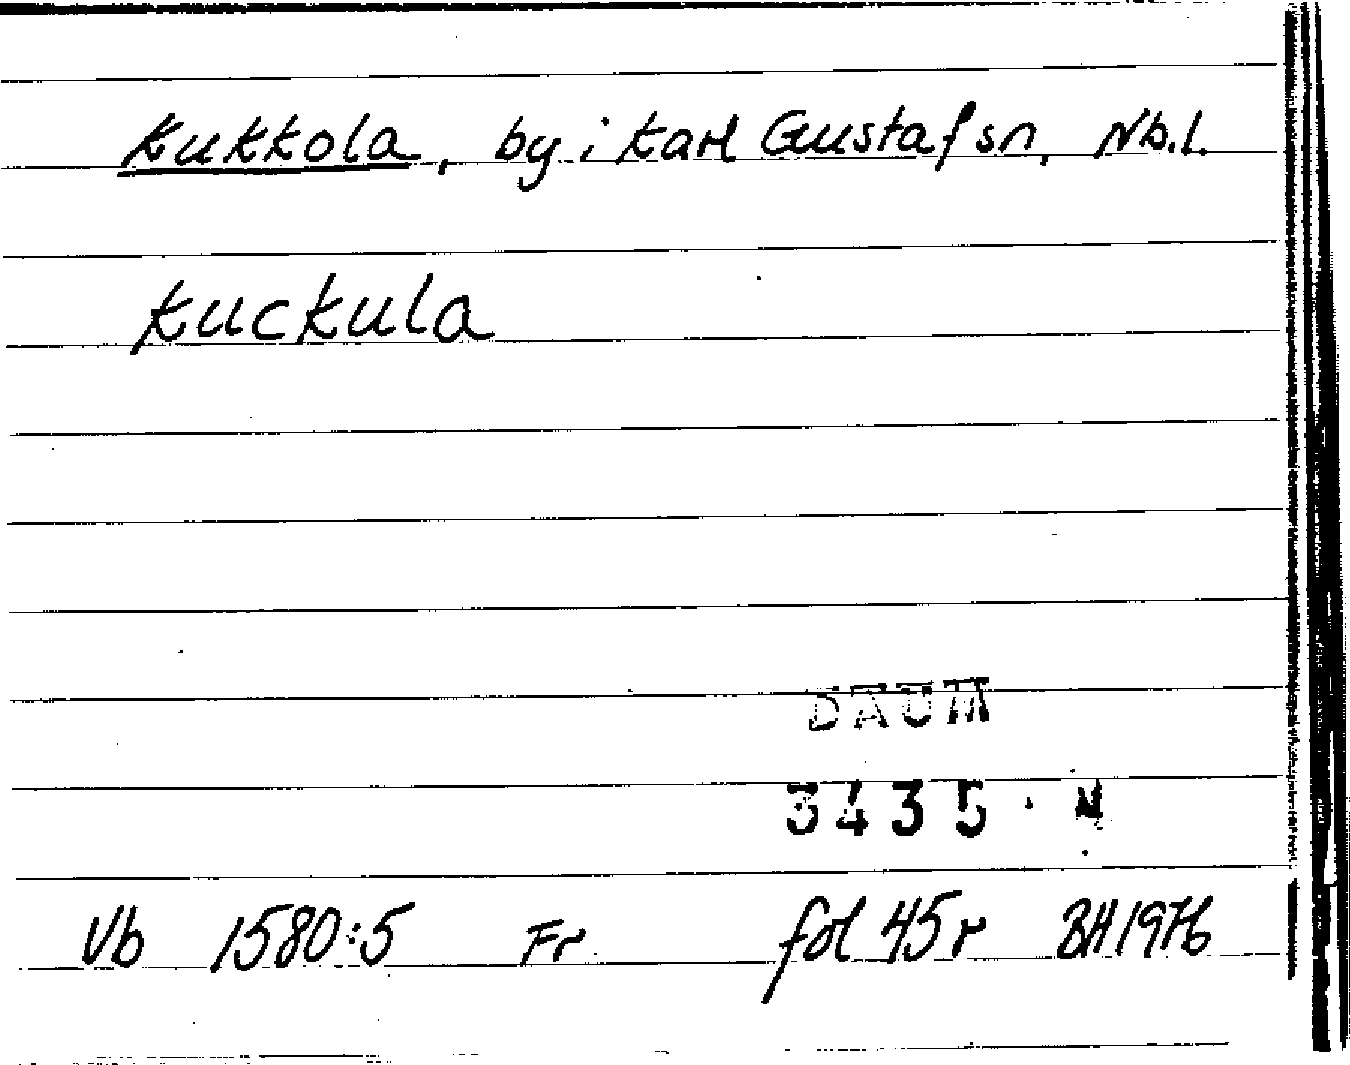 Kukkola, by i Karl Gustaf sn, Nb.l.
Kuckula
DAUM
3435 · N
Vb 1580:5 Fr fol 45r BH 1976